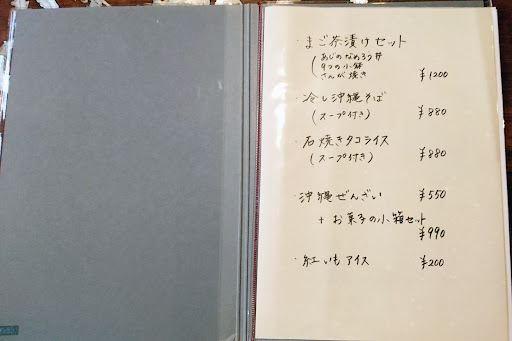 ・まご茶漬けセット
(あじのなめろう丼
9つの小鉢
さんが焼き ¥1200
・冷し沖縄そば
(スープ付き) ¥880
・石焼きタコライス
(スープ付き) ¥880
・沖縄ぜんざい ¥550
+ お菓子の小箱セット
¥990
・紅いもアイス ¥200